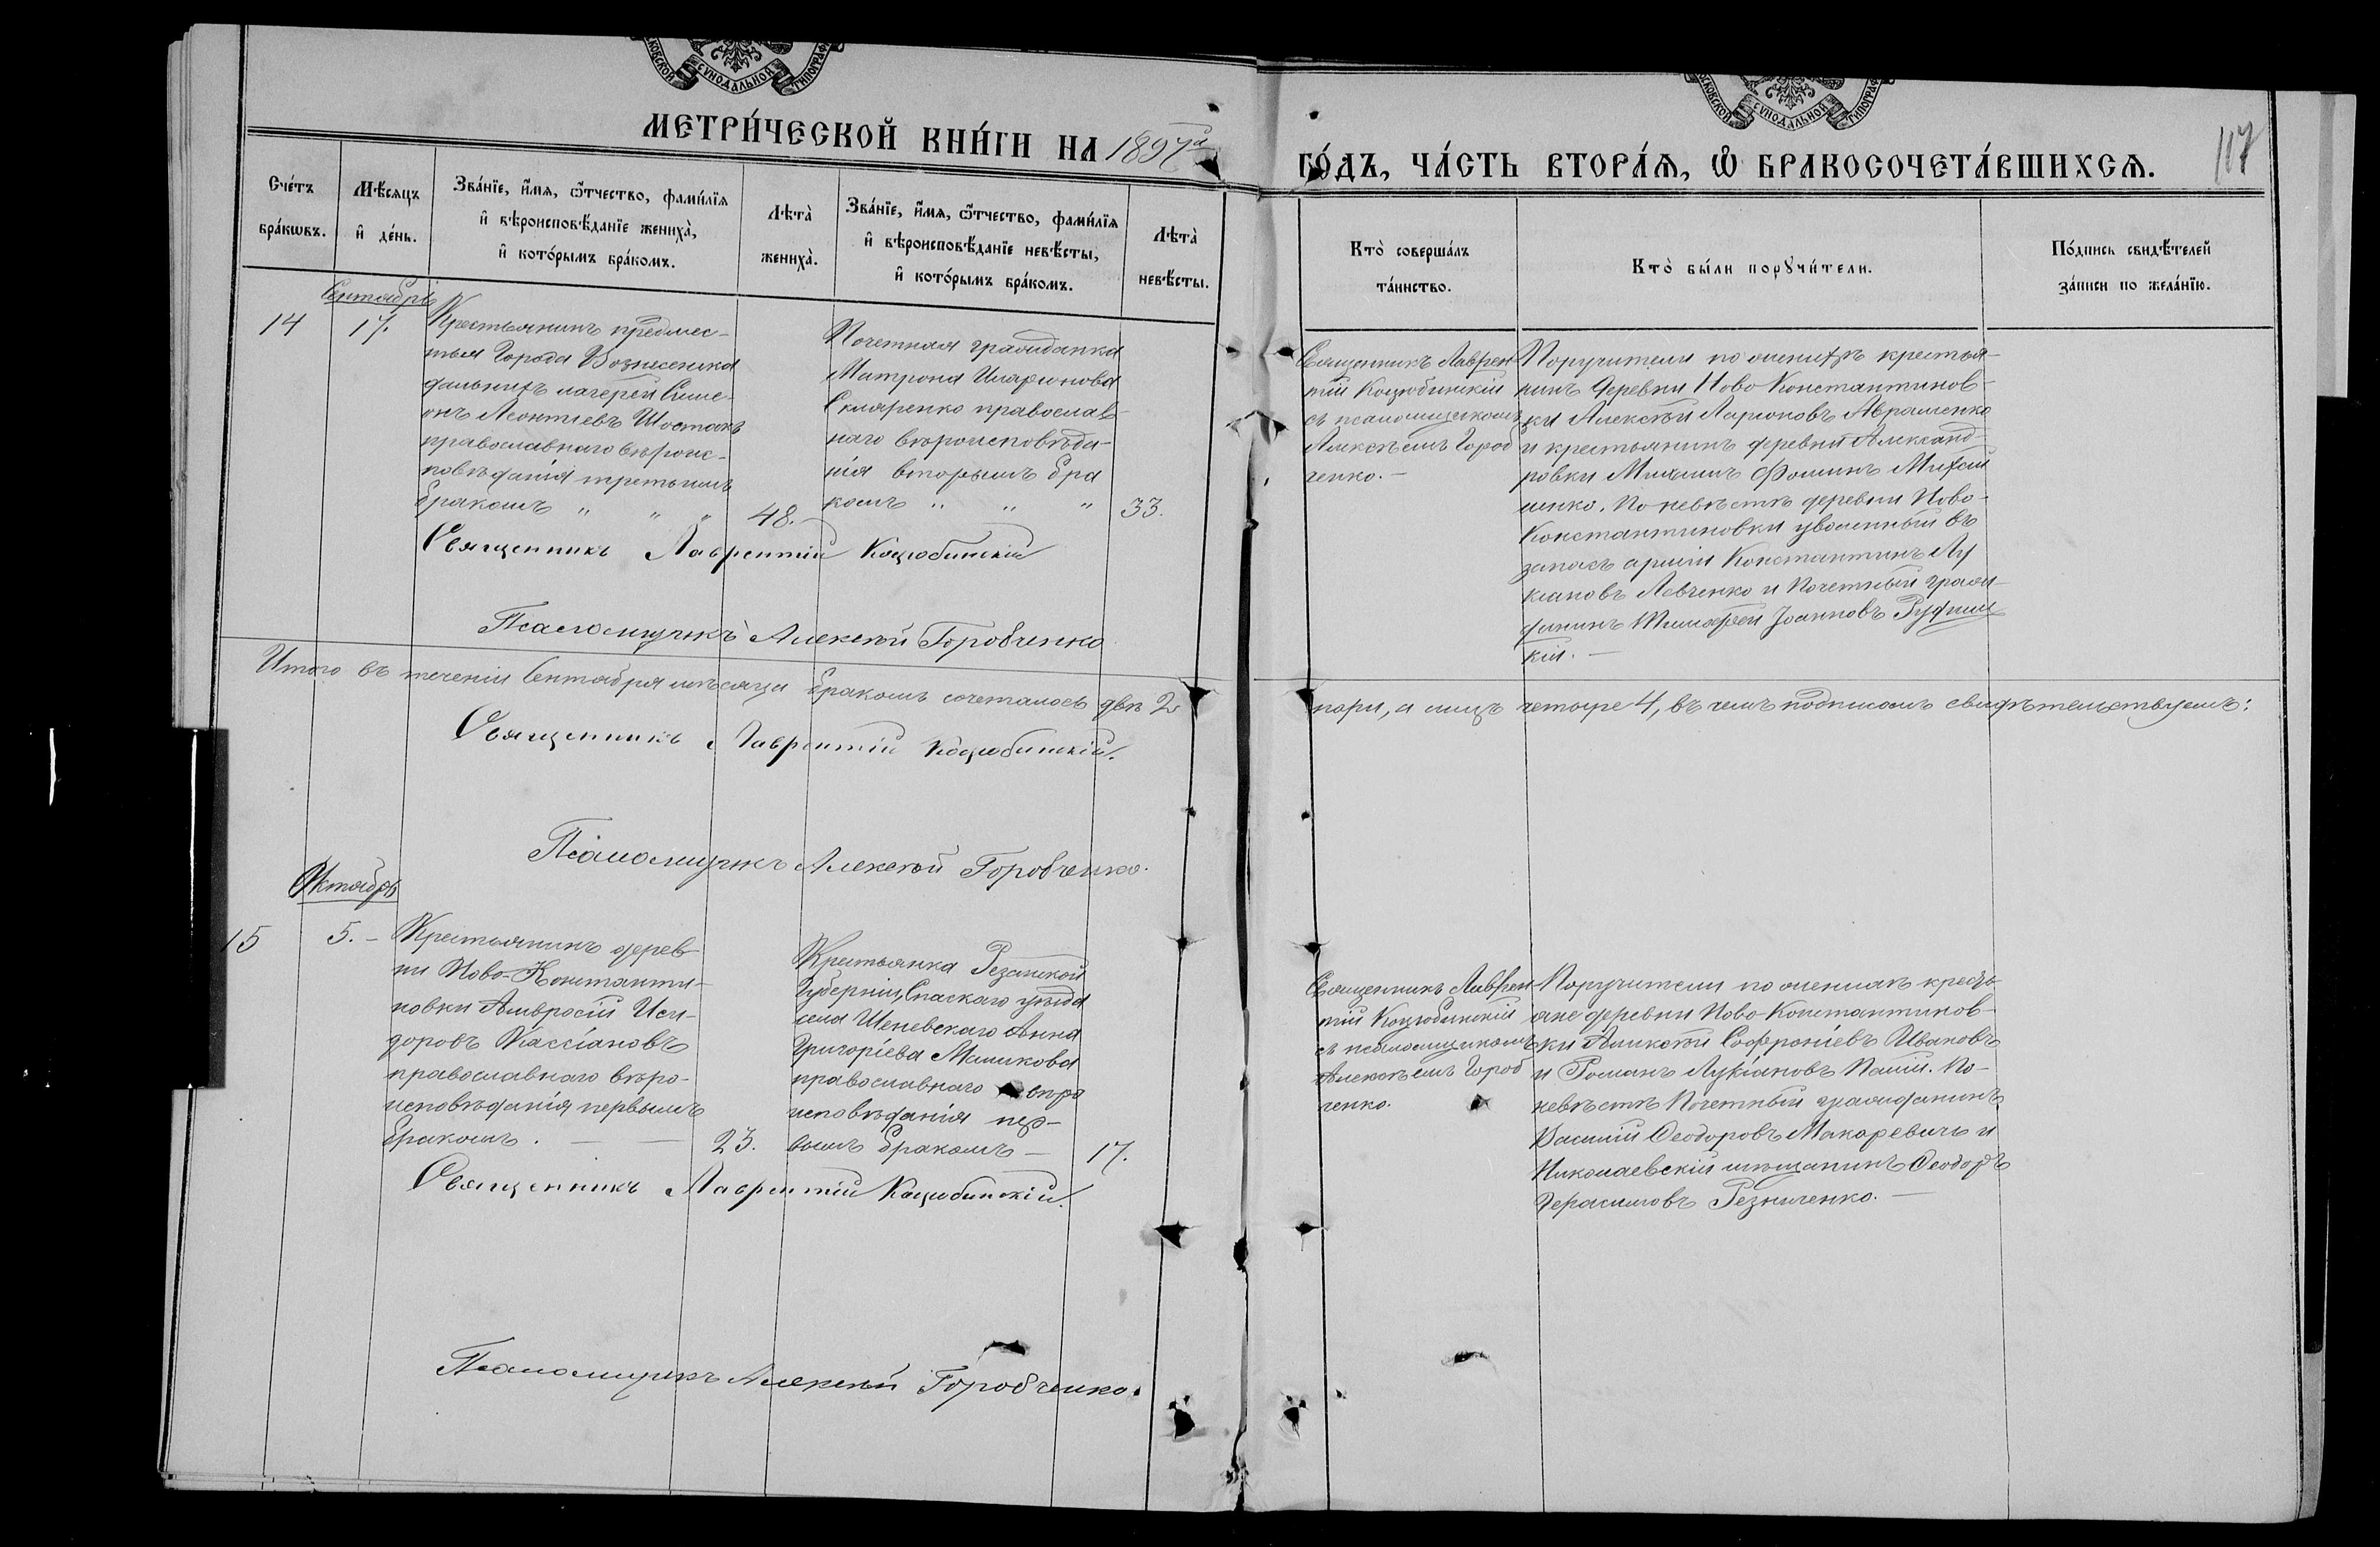 МЕТРИ́ЧЕСКОЙ КНИ́ГИ НА 1897й
ГО́ДЪ, ЧА́СТЬ ВТОРА́Ѧ, Ѡ҆ БРАКОСОЧЕТА́ВШИХСѦ.
117
Сче́тъ бра́кѡвъ.
Мѣ́сяцъ и҆ де́нь.
Зва́нїе, и҆́мѧ, ѻ҆́тчество, фами́лїѧ
и҆ вѣроисповѣ́данїе жениха̀,
и҆ кото́рымъ бра́комъ.
Лѣта̀ жениха̀.
Зва́нїе, и҆́мѧ, ѻ҆́тчество, фами́лїѧ
и҆ вѣроисповѣ́данїе невѣ́сты,
и҆ кото́рымъ бра́комъ.
Лѣта̀ невѣ́сты.
Кто̀ соверша́лъ
та́инство.
Кто̀ бы́ли порꙋчи́тели.
По́дпись свидѣ́телей
за́писи по жела́нїю.
Сентябрь
14
17.
Крестьянинъ предмес-
тья Города Вознесенска
дальнихъ лагерей Симе-
онъ Леонтіевъ Шостакъ
православнаго вѣроис-
повѣданія третьимъ
бракомъ " " "
48.
Почетная гражданка
Матрона Иларіонова
Скляренко православ-
наго вѣроисповѣда-
нія вторымъ бра
комъ " " "
33.
Священникъ Лаврен-
тій Коцюбинскій
съ псаломщикомъ
Алексѣемъ Город
ченко. -
Поручители по женихѣ крестья-
нинъ деревни Ново-Константинов-
ки Алексѣй Ларіоновъ Авраменко
и крестьянинъ деревни Александ-
ровки Михаилъ Фоминъ Михай
ленко. По невѣстѣ деревни Ново-
Константиновки уволенный въ
запасъ арміи Константинъ Лу
кіановъ Левченко и Почетный граж-
данинъ Тимофей Іоанновъ Рудниц
кій. -
Священникъ Лаврентій Коцюбинскій
Псаломщикъ Алексѣй Горобченко
Итого въ теченіи Сентября мѣсяца бракомъ сочеталось двѣ 2
пары, а лицъ четыре 4, въ чемъ подписомъ свидѣтельствуемъ:
Священникъ Лаврентій Коцюбинскій.
Псаломщикъ Алексѣй Горобченко.
Октябрь
15
5. -
Крестьянинъ дерев-
ни Ново-Константи-
новки Амвросій Иси-
доровъ Кассіановъ
православнаго вѣро-
исповѣданія первымъ
бракомъ. - -
23.
Крестьянка Резанской
Губерніи, Спаскаго уѣзда
села Шеневскаго Анна
Григоріева Машкова
православнаго вѣро
исповѣданія пер-
вымъ бракомъ -
17.
Священникъ Лаврен-
тій Коцюбинскій
съ псаломщикомъ
Алексѣемъ Город
ченко.
Поручители по женихѣ кресть-
яне деревни Ново-Константинов-
ки Алексѣй Софроніевъ Ивановъ
и Романъ Лукіановъ Палій. По-
невѣстѣ Почетный гражданинъ
Василій Ѳеодоровъ Макаревичъ и
Николаевскій мѣщанинъ Ѳеодоръ
Герасимовъ Резниченко. -
Священникъ Лаврентій Коцюбинскій.
Псаломщикъ Алексѣй Горобченко.